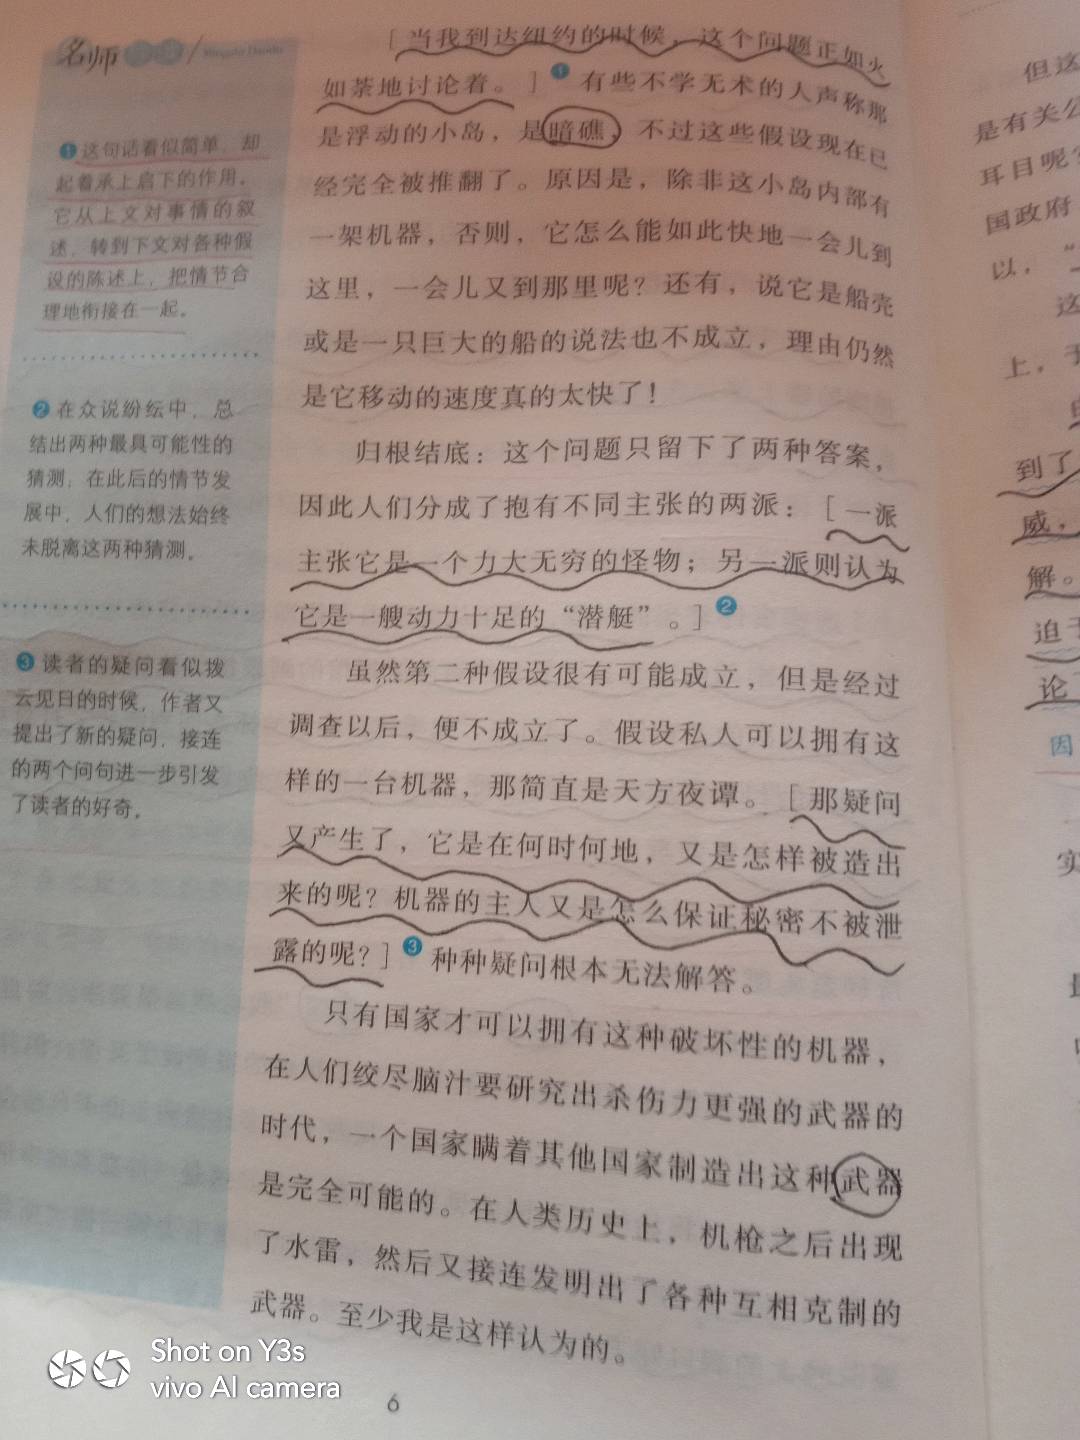 名师
❶这句话看似简单，却
起着承上启下的作用。
它从上文对事情的叙
述，转到下文对各种假
设的陈述上，把情节合
理地衔接在一起。
❷在众说纷纭中，总
结出两种最具可能性的
猜测，在此后的情节发
展中，人们的想法始终
未脱离这两种猜测。
❸读者的疑问看似拨
云见日的时候，作者又
提出了新的疑问，接连
的两个问句进一步引发
了读者的好奇。
[当我到达纽约的时候，这个问题正如火
如荼地讨论着。]❶有些不学无术的人声称那
是浮动的小岛，是暗礁，不过这些假设现在已
经完全被推翻了。原因是，除非这小岛内部有
一架机器，否则，它怎么能如此快地一会儿到
这里，一会儿又到那里呢？还有，说它是船壳
或是一只巨大的船的说法也不成立，理由仍然
是它移动的速度真的太快了！
归根结底：这个问题只留下了两种答案，
因此人们分成了抱有不同主张的两派：[一派
主张它是一个力大无穷的怪物；另一派则认为
它是一艘动力十足的“潜艇”。]❷
虽然第二种假设很有可能成立，但是经过
调查以后，便不成立了。假设私人可以拥有这
样的一台机器，那简直是天方夜谭。[那疑问
又产生了，它是在何时何地，又是怎样被造出
来的呢？机器的主人又是怎么保证秘密不被泄
露的呢？]❸种种疑问根本无法解答。
只有国家才可以拥有这种破坏性的机器，
在人们绞尽脑汁要研究出杀伤力更强的武器的
时代，一个国家瞒着其他国家制造出这种武器
是完全可能的。在人类历史上，机枪之后出现
了水雷，然后又接连发明出了各种互相克制的
武器。至少我是这样认为的。
6
但这
是有关公
耳目呢？
国政府
以，“
这
上，
到了
威，
解。
迫于
论
因
实
Shot on Y3s
vivo AI camera